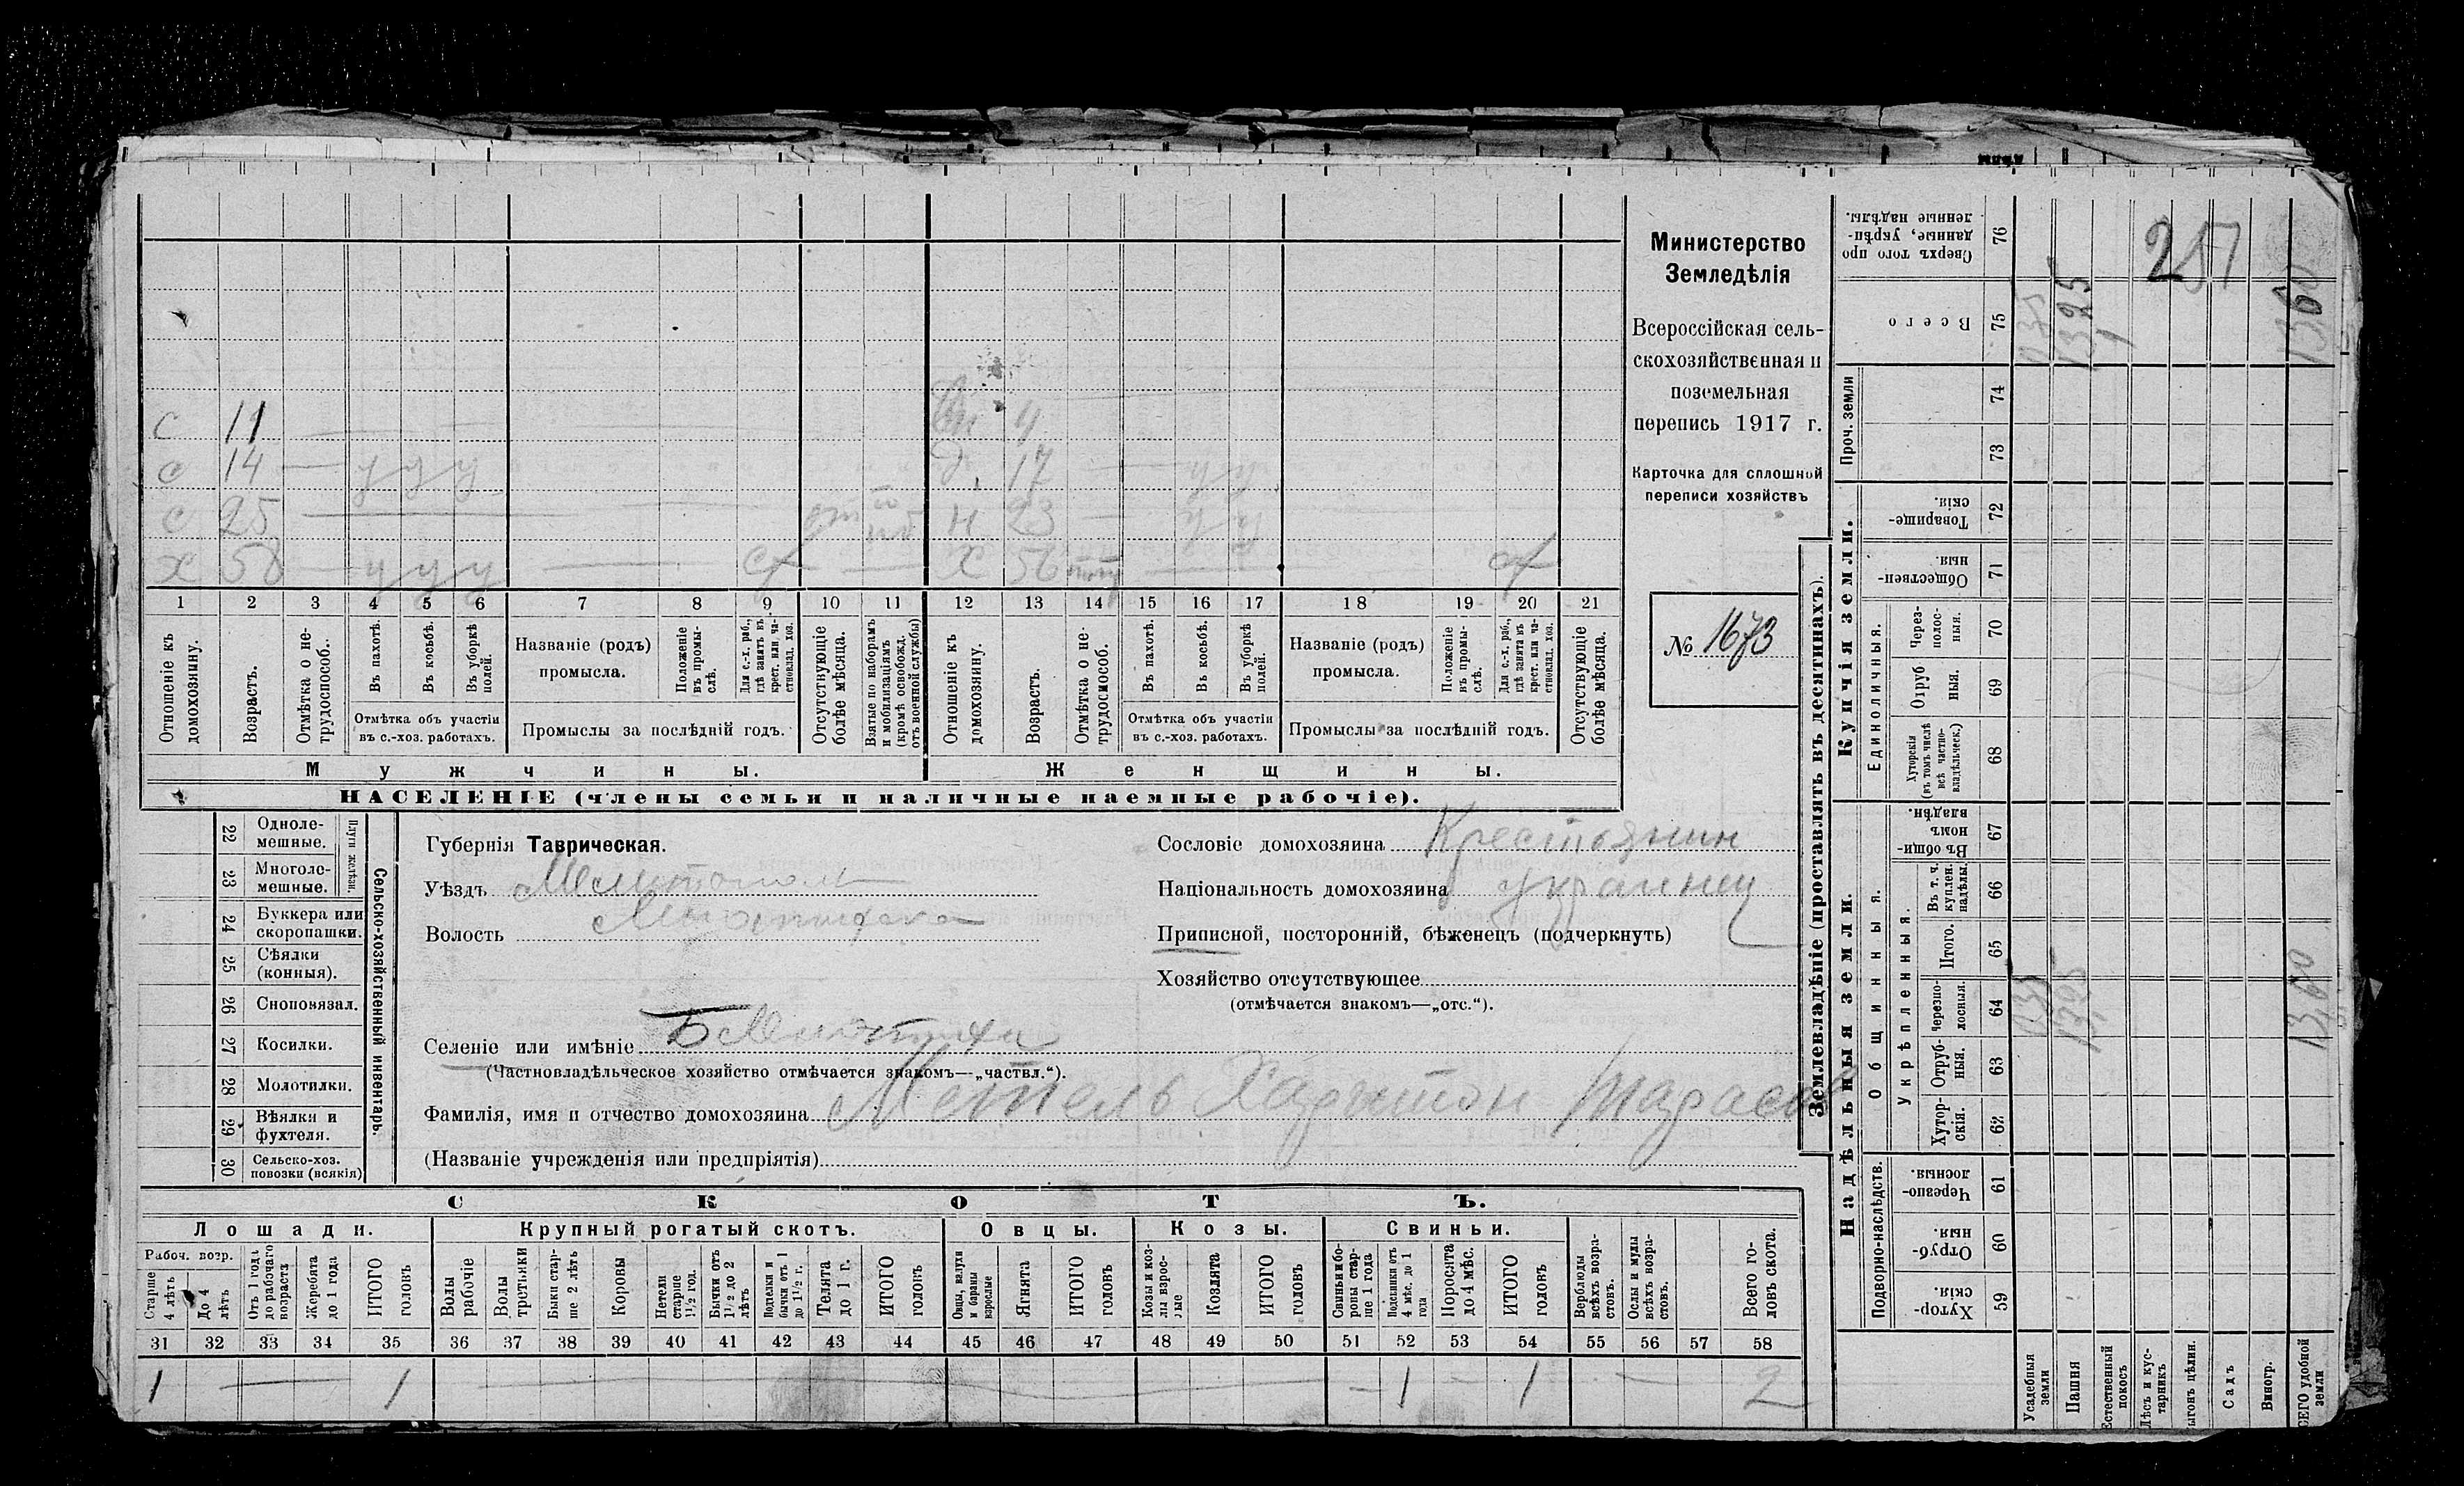 Министерство
Земледѣлія
Всероссійская сель-
скохозяйственная и
поземельная
перепись 1917 г.
Карточка для сплошной
переписи хозяйствъ
№ 1673
с 11 4
с 14 — у у у д. 17 — у у
с 25 н 23 — у у
х 58 — у у у — сх — х 56 — сх
1 2 3 4 5 6 7 8 9 10 11 12 13 14 15 16 17 18 19 20 21
Отношеніе къ домохозяину.
Возрастъ.
Отмѣтка о не-трудоспособ.
Въ пахотѣ.
Въ косьбѣ.
Въ уборкѣ полей.
Отмѣтка объ участіи
въ с.-хоз. работахъ.
Названіе (родъ)
промысла.
Положеніе въ промы-слѣ.
Для с.-х. раб., гдѣ занятъ въ крест. или ча-стновлад. хоз.
Промыслы за послѣдній годъ.
Отсутствующіе болѣе мѣсяца.
Взятые по наборамъ и мобилизаціямъ (кромѣ освобожд. отъ военной службы)
Отношеніе къ домохозяину.
Возрастъ.
Отмѣтка о не-трудоспособ.
Въ пахотѣ.
Въ косьбѣ.
Въ уборкѣ полей.
Отмѣтка объ участіи
въ с.-хоз. работахъ.
Названіе (родъ)
промысла.
Положеніе въ промы-слѣ.
Для с.-х. раб., гдѣ занята въ крест. или ча-стновлад. хоз.
Промыслы за послѣдній годъ.
Отсутствующіе болѣе мѣсяца.
Мужчины. Женщины.
НАСЕЛЕНІЕ (члены семьи и наличные наемные рабочіе).
Сельско-хозяйственный инвентарь.
Плуги желѣзн.
22 Одноле-мешные.
23 Многоле-мешные.
24 Буккера или скоропашки.
25 Сѣялки (конныя).
26 Сноповязал.
27 Косилки.
28 Молотилки.
29 Вѣялки и фухтеля.
30 Сельско-хоз. повозки (всякія)
Губернія Таврическая.
Уѣздъ Мелитополь
Волость
Селеніе или имѣніе
(Частновладѣльческое хозяйство отмѣчается знакомъ—„частвл.“).
Фамилія, имя и отчество домохозяина Метель Харитон Тарасов
(Названіе учрежденія или предпріятія)
Сословіе домохозяина Крестьянин
Національность домохозяина Украинец
Приписной, посторонній, бѣженецъ (подчеркнуть)
Хозяйство отсутствующее
(отмѣчается знакомъ—„отс.“).
СКОТЪ.
Лошади. Крупный рогатый скотъ. Овцы. Козы. Свиньи.
Рабоч. возр.
Старше 4 лѣтъ
До 4 лѣтъ
Отъ 1 года до рабочаго возраста
Жеребята до 1 года
ИТОГО головъ
Волы рабочіе
Волы третьяки
Быки стар-ше 2 лѣтъ
Коровы
Нетели старше 1½ год.
Бычки отъ 1½ до 2 лѣтъ
Подтелки и бычки отъ 1 до 1½ г.
Телята до 1 г.
ИТОГО головъ
Овцы, валухи и бараны взрослые
Ягнята
ИТОГО головъ
Козы и коз-лы взрос-лые
Козлята
ИТОГО головъ
Свиньи и бо-ровы стар-ше 1 года
Подсвинки отъ 4 мѣс. до 1 года
Поросята до 4 мѣс.
ИТОГО головъ
Верблюды всѣхъ возра-стовъ.
Ослы и мулы всѣхъ возра-стовъ.
Всего го-ловъ скота.
31 32 33 34 35 36 37 38 39 40 41 42 43 44 45 46 47 48 49 50 51 52 53 54 55 56 57 58
1 — 1 — 1 — 1 — 2
Землевладѣніе (проставлять въ десятинахъ).
Надѣльныя земли. Купчія земли. Проч. земли
Подворно-наслѣдств.
Общинныя.
Укрѣпленныя.
Единоличныя.
59 Хутор-скія.
60 Отруб-ныя.
61 Черезпо-лосныя.
62 Хутор-скія.
63 Отруб-ныя.
64 Черезпо-лосныя.
65 Итого.
66 Въ т. ч. куплен. надѣлы.
67 Въ общи-номъ владѣн.
68 Хуторскія (въ томъ числѣ всѣ частно-владѣльческ.)
69 Отруб ныя.
70 Через-полос-ныя.
71 Обществен-ныя.
72 Товарище-скія.
73
74
75 Всего
76 Сверхъ того про данные, укрѣп-ленные надѣлы.
Усадебныя земли
Пашня
Естественный покосъ
Лѣсъ и кус-тарникъ
ыгонъ цѣлин.
Садъ
Виногр.
СЕГО удобной земли
035 1325 1360
035 1325 1360
257